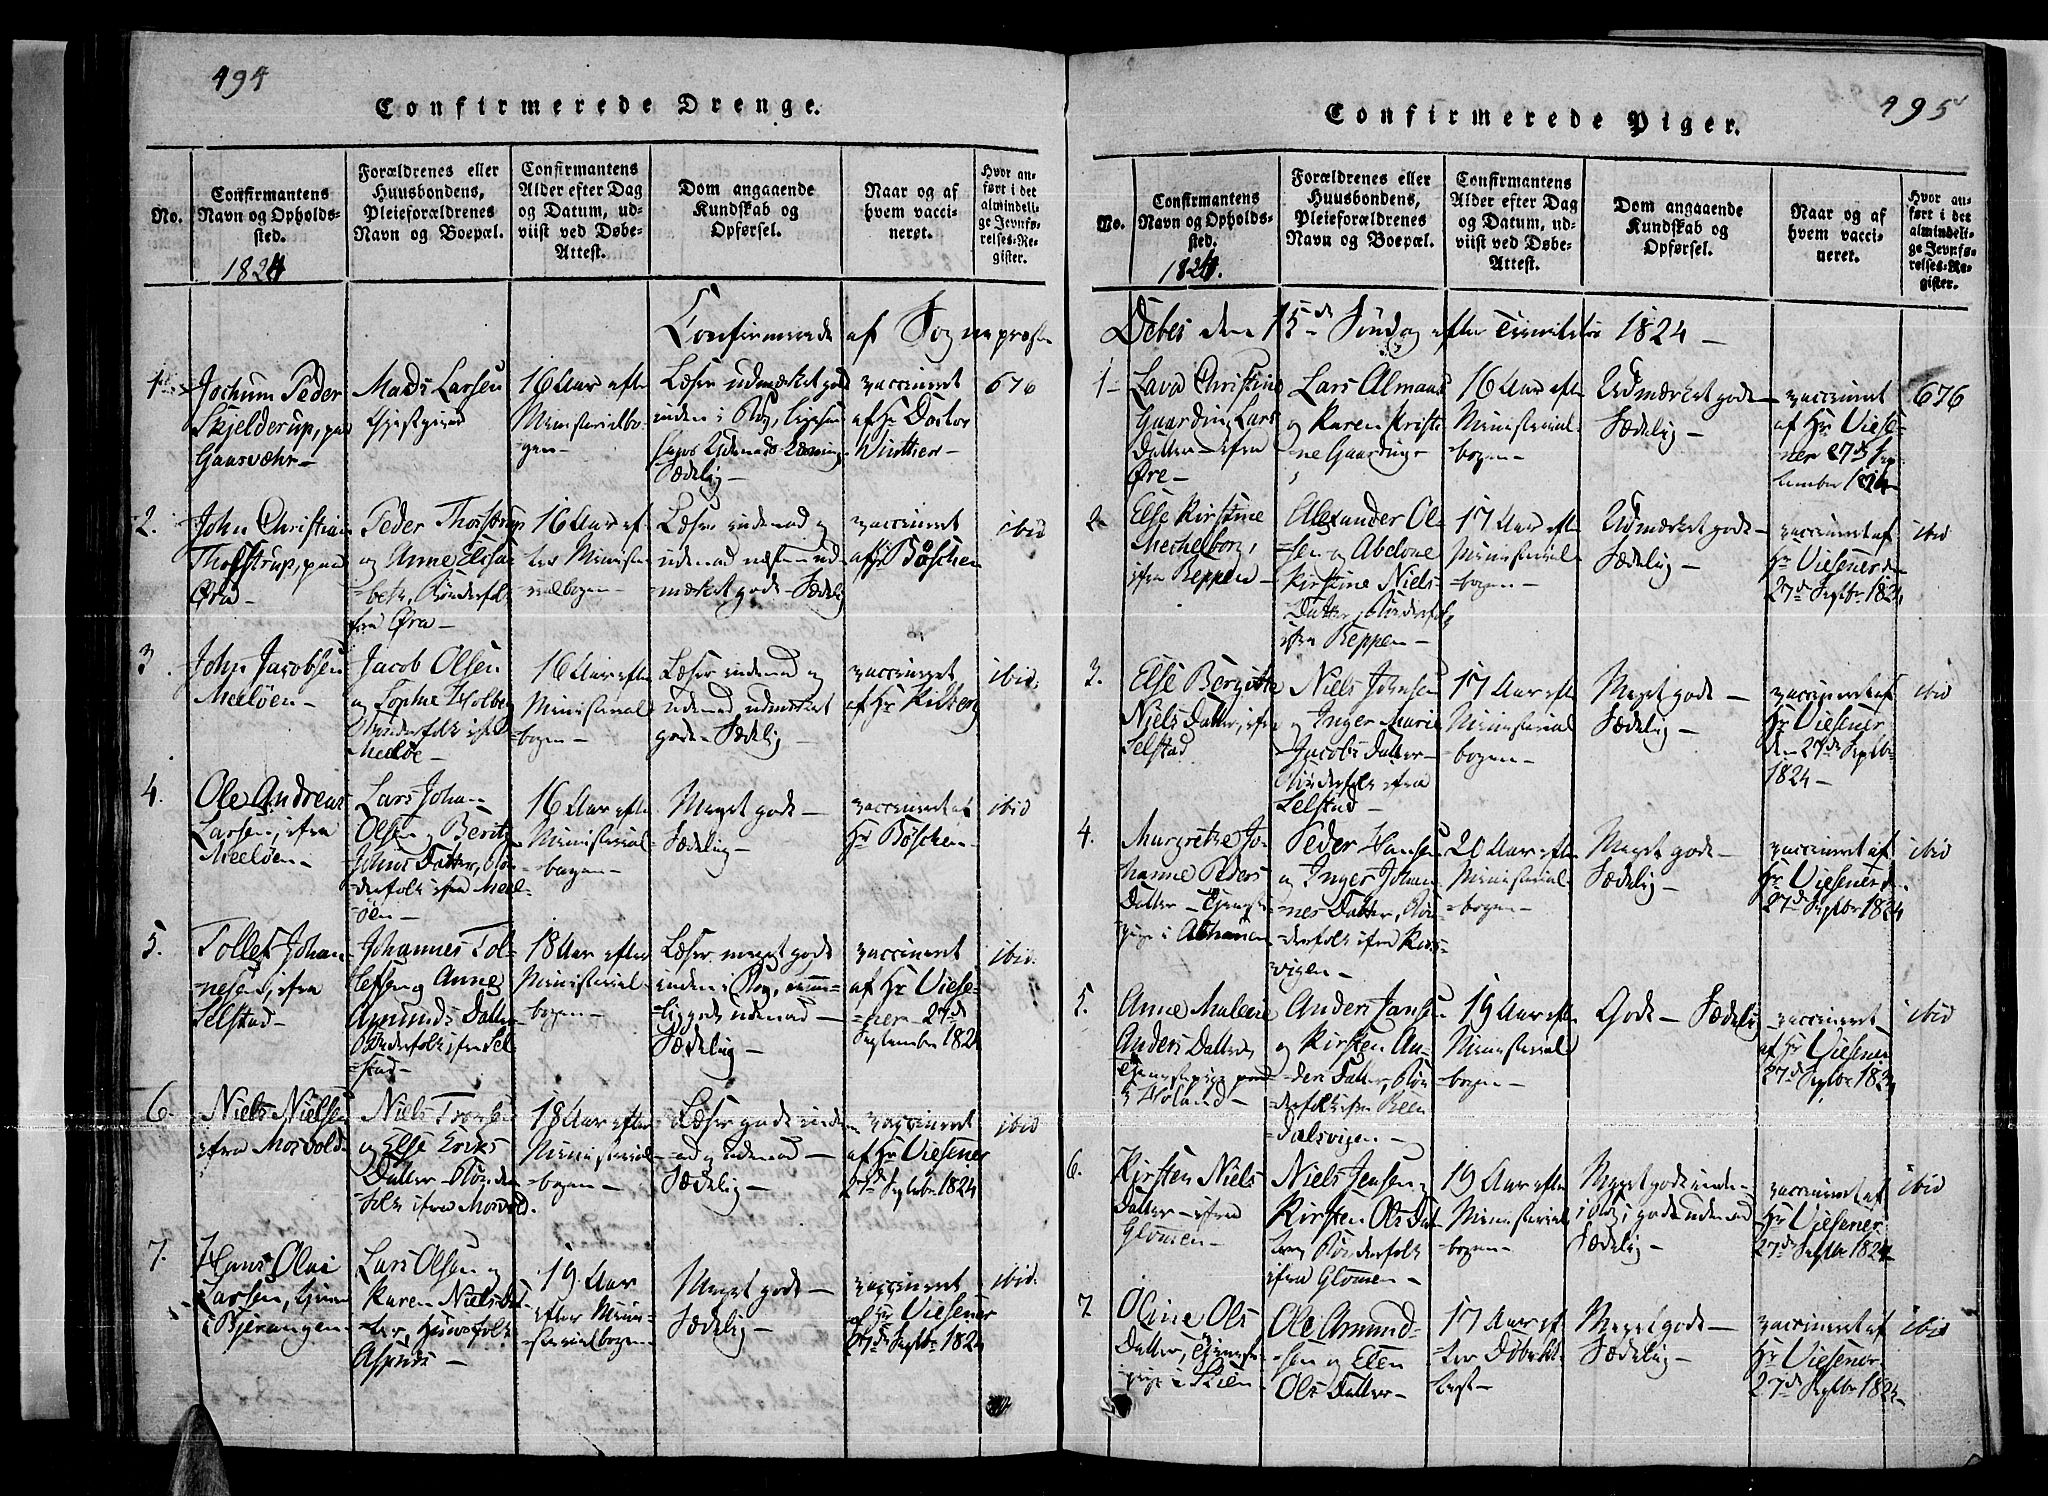 494
Confirmerede Drenge.
No.
Confirmantens
Navn og Opholds-
sted.
1824
Forældrenes eller
Huusbondens,
Pleieforældrenes
Navn og Boepæl.
Confirmantens
Alder efter Dag
og Datum, ud-
viist ved Døbe-
Attest.
Dom angaaende
Kundskab og
Opførsel.
Naar og af
hvem vacci-
neret.
Hvor an-
ført i det
almindeli-
ge Jevnfø-
relses-Re-
gister.
Confirmerede af Sognepræsten
1
Jochum Peder
Skjelderup, paa
Gaasvæhr-
Mads Larsen
Gjestgiver
16 Aar efter
Ministerialbo-
gen-
Læser udmærket godt
inden i Bog,
Sædelig-
vaccineret
af Hr Doctor
Winther-
676
2.
John Christian
Thorstrup, paa
Øra-
Peder Thorstrup
og Anne Elisa-
=beth, Bönderfolk
fra Øra-
16 Aar ef-
ter Ministe-
rialbogen-
Læser indenad og
udenad næsten ud-
=mærket godt- Sædelig
vaccineret
af Hr Böschen
ibid
3
John Jacobsen
Meelöen-
Jacob Olsen
og Sophie Holberg
Bönderfolk ifra
Meelöe-
16 Aar efter
Ministerial
=bogen-
Læser indenad og
udenad udmærket
godt- Sædelig-
vaccineret
af Hr Kilberg
ibid.
4.
Ole Andreas
Larsen, ifra
Meelöen-
Lars Johan
Olsen og Berit
Johns Datter, Bön-
=derfolk ifra Meel-
=öen-
16 Aar efter
Ministerial
=bogen-
Meget godt-
Sædelig-
vaccineret af
Hr Böschen-
ibid
5.
Tollef Johan-
=nesen, ifra
Selstad-
Johannes Tol-
lefsen og Anne
Amunds Datter
Bönderfolk, ifra Sel-
=stad-
18 Aar efter
Ministerial-
bogen-
Læser meget godt
inden i Bog, temme-
=lig godt udenad-
Sædelig-
vaccineret
af Hr Viese-
=ner 27de
September 1824
ibid.
6.
Niels Nielsen
ifra Morvold-
Niels Tronsen
og Else Eriks
Datter- Bönder
folk ifra Morvold.
18 Aar efter
Ministerial-
=bogen-
Læser godt inden-
=ad og udenad-
Sædelig-
vaccineret
af Hr Viesener
27de Septbr 1824
ibid
7.
Hans Olai
Larsen, tjener
i Bjerangen-
Lars Olsen og
Karen Niels Dat-
ter, Huusfolk
19 Aar
efter Mini-
sterialbogen
Meget godt-
Sædelig-
vaccineret
af Hr Viesener
27de Septbr 1824
ibid.
495
Confirmerede Piger.
No.
Confirmantens
Navn og Opholds-
sted.
1824.
Forældrenes eller
Huusbondens,
Pleieforældrenes
Navn og Boepæl.
Confirmantens
Alder efter Dag
og Datum, ud-
viist ved Døbe-
Attest.
Dom angaaende
Kundskab og
Opførsel.
Naar og af
hvem vacci-
neret.
Hvor an-
ført i det
almindeli-
ge Jevnfø-
relses-Re-
gister.
Debes den 15de Söndag efter Trinitatis 1824-
1-
Lava Christine
Gaarding Lars
Datter- ifra
Øre-
Lars Almaas
og Karen Kristi-
ne Gaarding-
16 Aar efter
Ministerial-
bogen-
Udmærket godt-
Sædelig-
vaccineret
af Hr Viese-
ner 27de Sep-
tember 1824
676
2
Else Kirstine
Mechelborg,
ifra Reppen-
Alexander Ol-
=sen og Abelone
Kirstine Niels-
Datter, Bönderfolk
ifra Reppen-
17 Aar efter
Ministerial
=bogen-
Udmærket godt-
Sædelig-
vaccineret af
Hr Viesener den
27de Septbr 1824
ibid
3.
Else Bergitte
Niels Datter, ifra
Selstad
Niels Johnsen
og Inger Marie
Jacobs Datter-
Bönderfolk ifra
Selstad-
17 Aar efter
Ministerial
=bogen-
Meget godt-
Sædelig-
vaccineret af
Hr Viesener
den 27de Septbr
1824-
ibid
4.
Margrethe Jo-
hanne Peders
Datter- Tjeneste-
pige i
Peder Hansen
og Inger Johan-
=nes Datter, Bön-
=derfolk ifra
vigen-
20 Aar efter
Ministerial-
=bogen-
Meget godt-
Sædelig-
vaccineret af
Hr Viesener den
27de Septbr 1824
ibid
5.
Anne Maleene
Anders Datter
Tjenestepige paa
Anders Jansen
og Kirsten An-
ders Datter, Bön
=derfolk ifra Reen-
=dalsvigen-
19 Aar efter
Ministerial
=bogen-
Godt- Sædelig
vaccineret
af Hr Viesener
27de Septbr 1824
ibid
6.
Kirsten Niels
Datter- ifra
Glomen-
Niels Jensen og
Kirsten Ols Dat-
ter, Bönderfolk
ifra Glomen-
19 Aar efter
Ministerial
=bogen-
Meget godt inden-
i Bog, godt udenad
Sædelig-
vaccineret af
Hr Viesener
27de Septbr 1824
ibid
7.
Oline Ols
Datter, Tjeneste-
pige i
Ole Amund-
sen og Elen
Ols Datter-
17 Aar ef-
ter Döbeat-
test-
Meget godt-
Sædelig-
vaccineret af
Hr Viesener
27de Septbr 1824
ibid